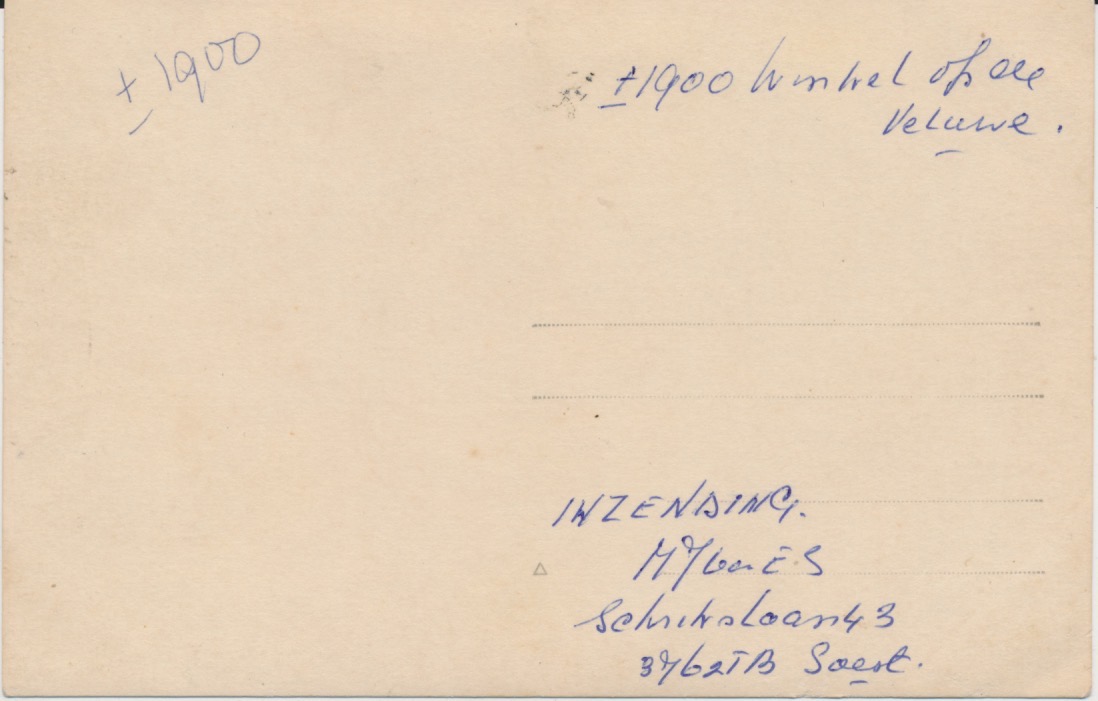 ± 1900
± 1900 Winkel op de
Veluwe.
INZENDING.
Schrikslaan 43
3762TB Soest.